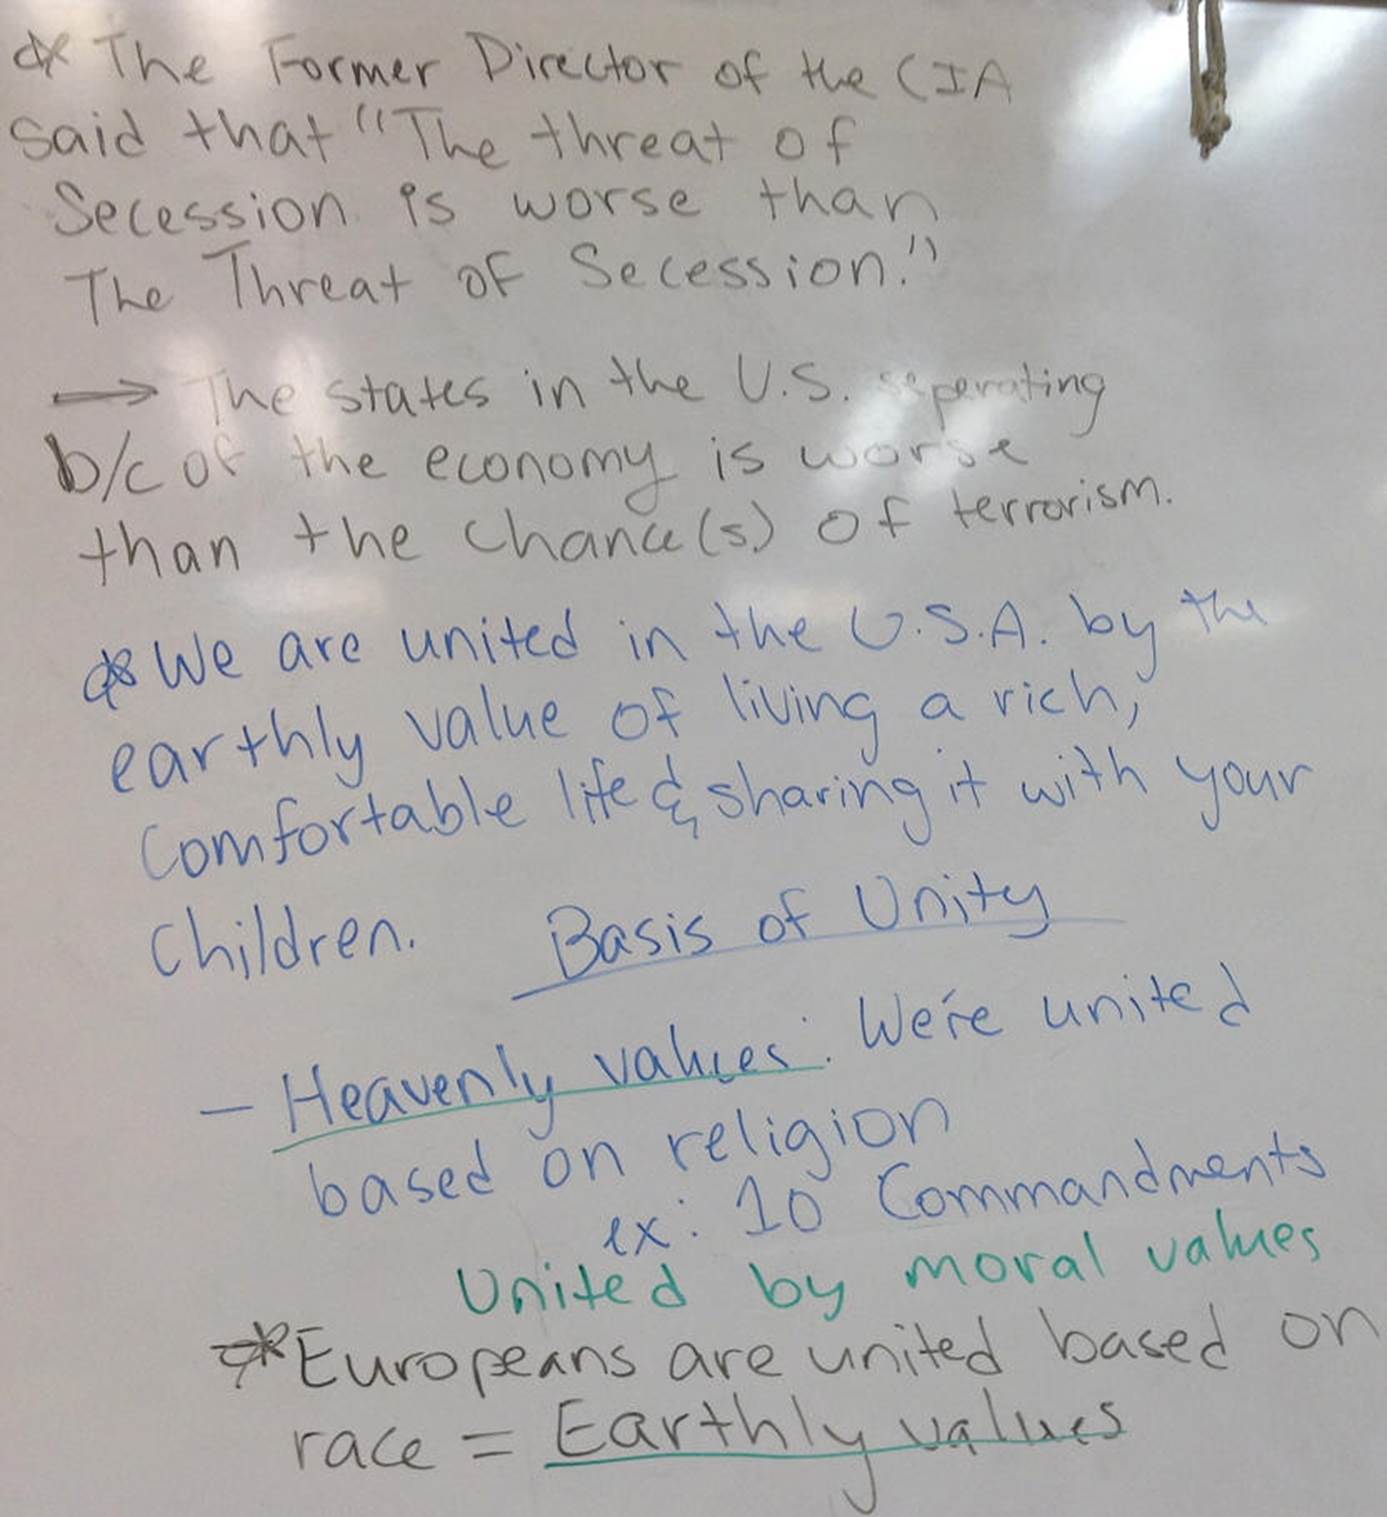 * The Former Director of the CIA
said that "The threat of
Secession is worse than
The Threat of Secession."
→ The states in the U.S. seperating
b/c of the economy is worse
than the chance(s) of terrorism.
* We are united in the U.S.A. by the
earthly value of living a rich,
comfortable life & sharing it with your
children.
Basis of Unity
- Heavenly values: We're united
based on religion
ex: 10 Commandments
United by moral values
* Europeans are united based on
race = Earthly values